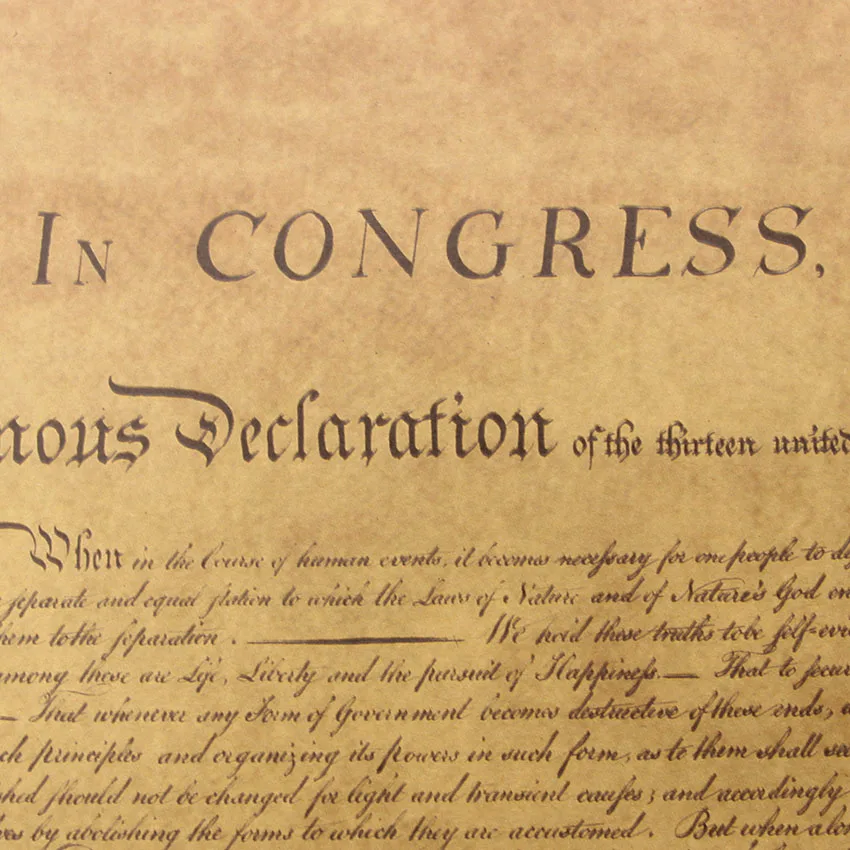 In CONGRESS,
nous Declaration of the thirteen united
When in the Course of human events, it becomes necessary for one people to di
separate and equal station to which the Laws of Nature and of Nature's God en
hem to the separation. ——— We hold these truths to be self-evi
among these are Life, Liberty and the pursuit of Happiness. — That to secur
— That whenever any Form of Government becomes destructive of these ends,
ch principles and organizing its powers in such form, as to them shall see
shed should not be changed for light and transient causes; and accordingly
ves by abolishing the forms to which they are accustomed. But when a lon